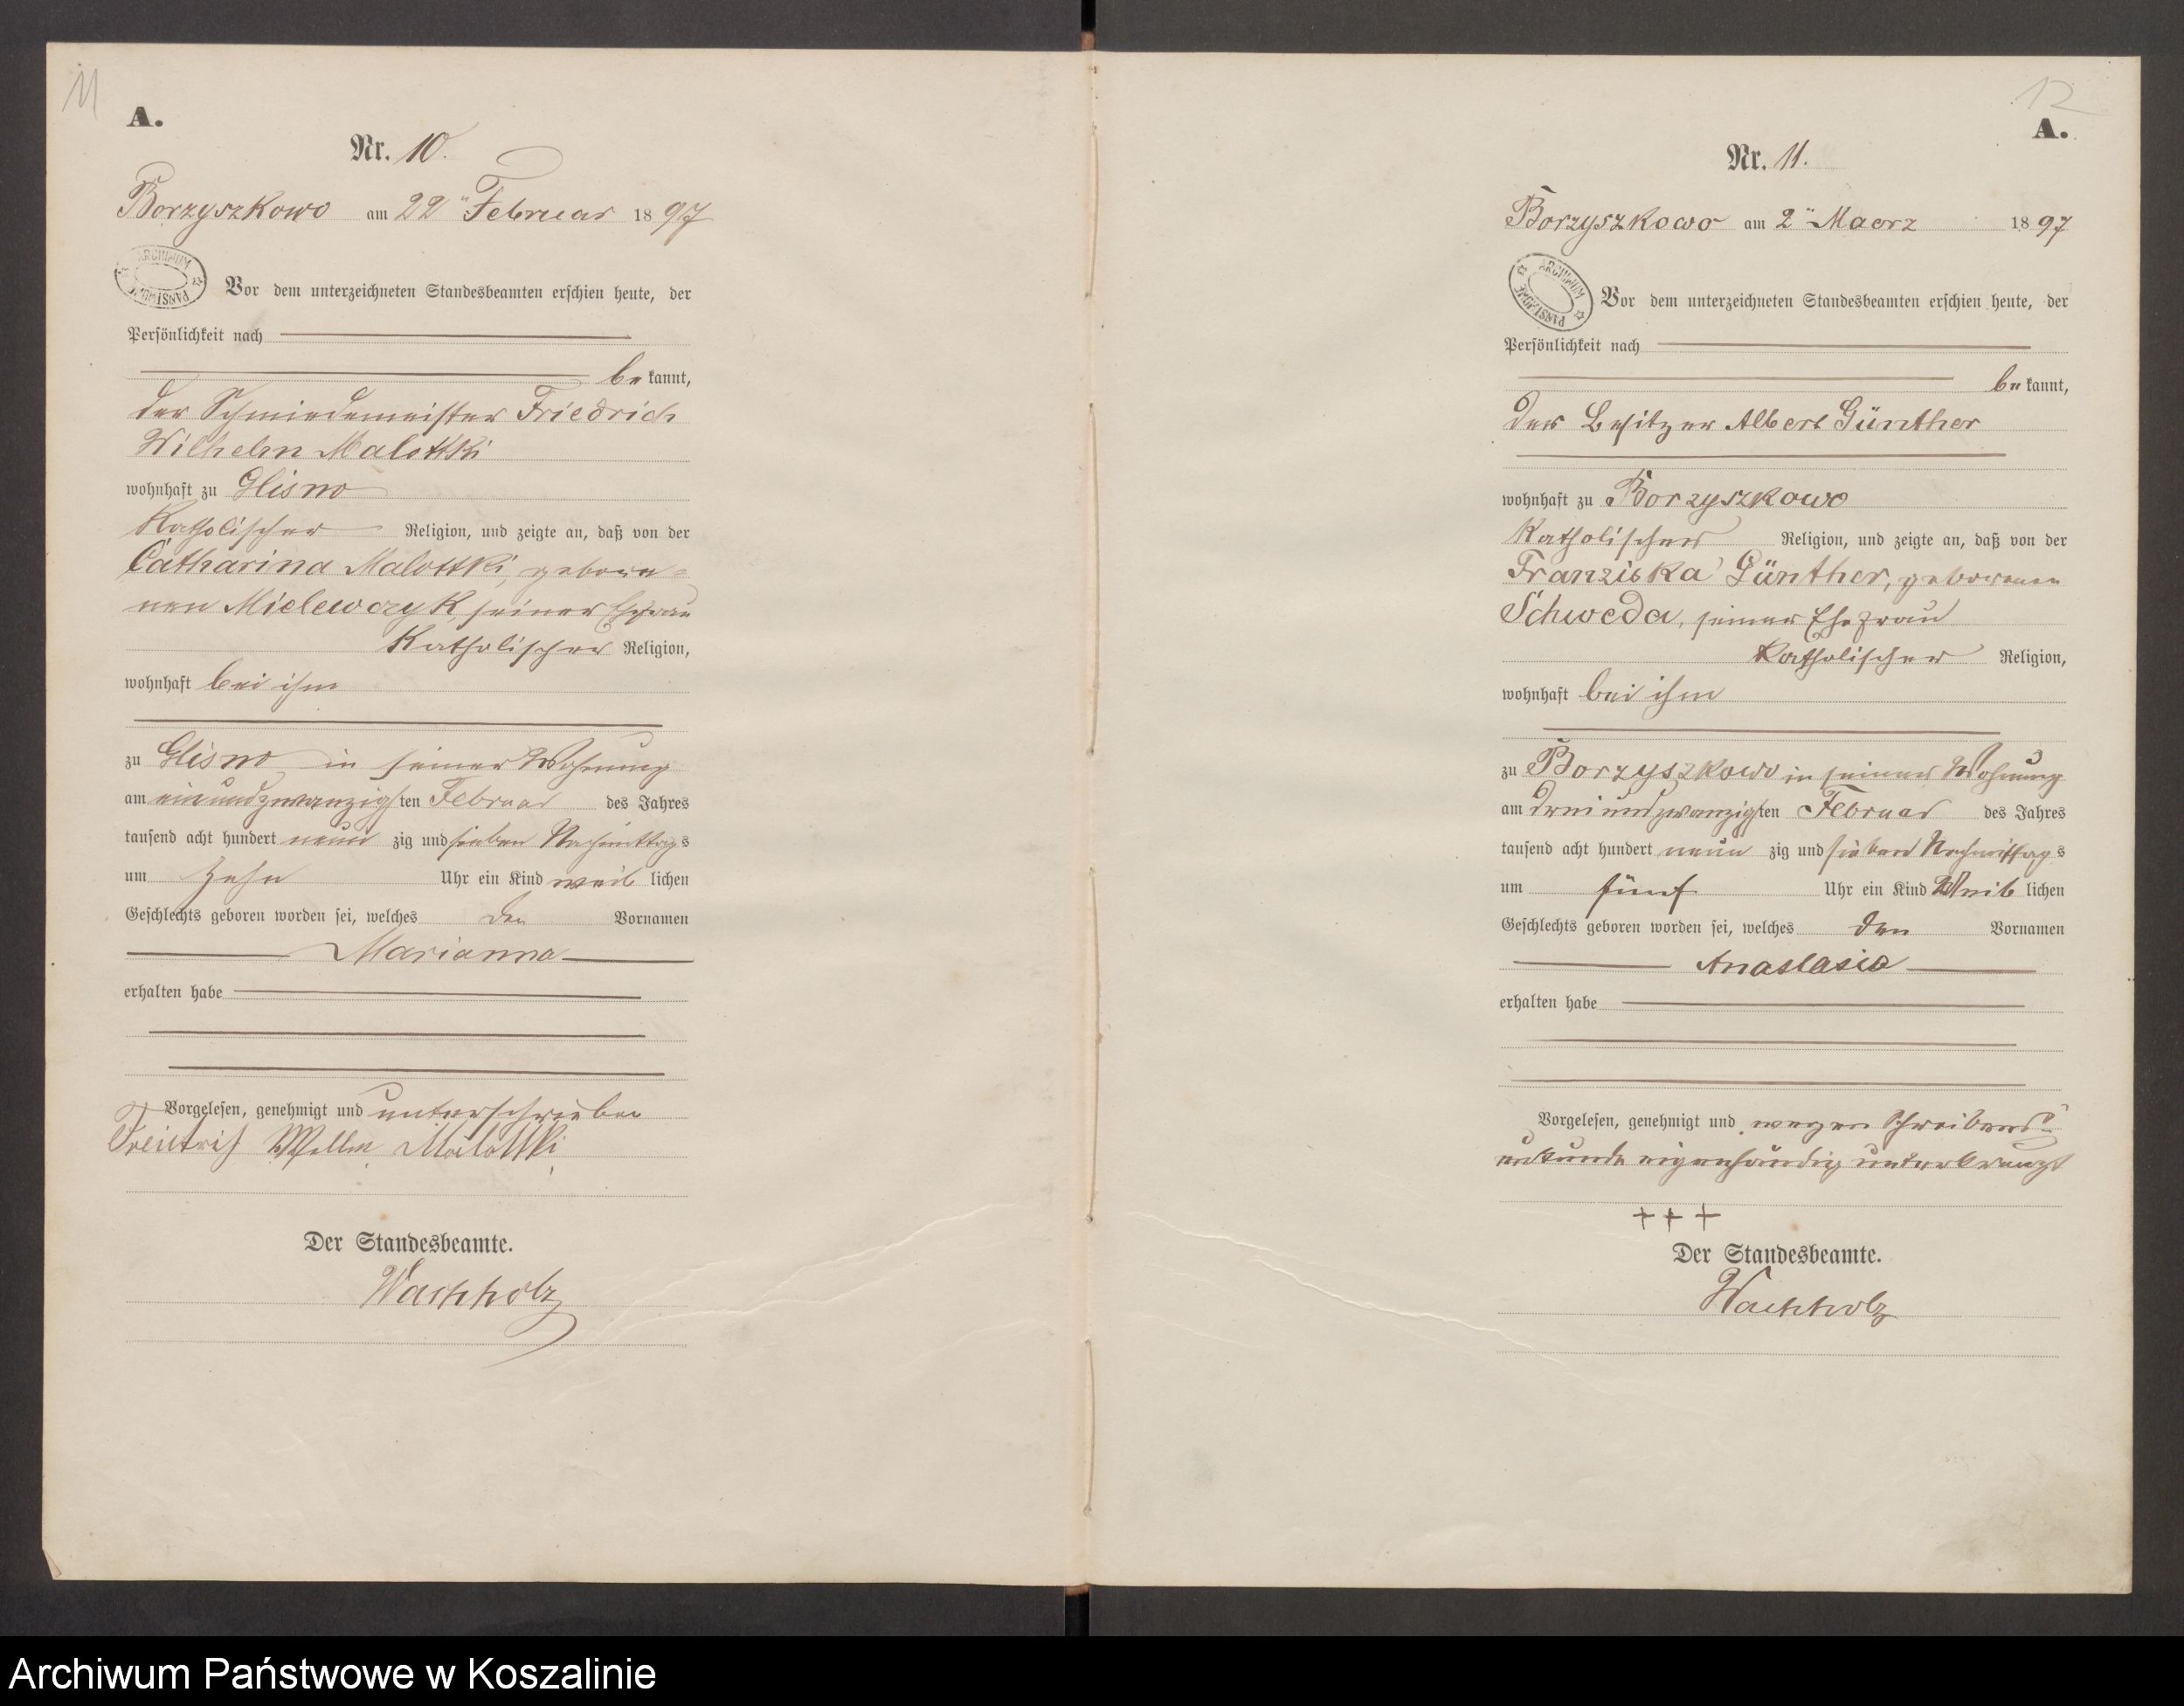 11
A.
Nr. 10.
Borzyszkowo am 22" Februar 1897
ARCHIWUM PAŃSTWOWE
Vor dem unterzeichneten Standesbeamten erschien heute, der
Persönlichkeit nach
bekannt,
der Schmiedemeister Friedrich
Wilhelm Malottki
wohnhaft zu Glisno
Katholischer Religion, und zeigte an, daß von der
Catharina Malottki, gebore=
nen Mielewczyk, seiner Ehefrau
Katholischer Religion,
wohnhaft bei ihm
zu Glisno in seiner Wohnung
am einundzwanzigsten Februar des Jahres
tausend acht hundert neun zig und sieben Nachmittags
um zehn Uhr ein Kind weiblichen
Geschlechts geboren worden sei, welches den Vornamen
Marianna
erhalten habe
Vorgelesen, genehmigt und unterschrieben
Malottki
Der Standesbeamte.
Wachholz
12
A.
Nr. 11.
Borzyszkowo am 2" Maerz 1897
ARCHIWUM PAŃSTWOWE
Vor dem unterzeichneten Standesbeamten erschien heute, der
Persönlichkeit nach
bekannt,
der Besitzer Albert Günther
wohnhaft zu Borzyszkowo
Katholischer Religion, und zeigte an, daß von der
Franziska Günther, geborenen
Schweda, seiner Ehefrau
Katholischer Religion,
wohnhaft bei ihm
zu Borzyszkowo in seiner Wohnung
am dreiundzwanzigsten Februar des Jahres
tausend acht hundert neun zig und sieben Nachmittags
um fünf Uhr ein Kind Weiblichen
Geschlechts geboren worden sei, welches den Vornamen
Anastasia
erhalten habe
Vorgelesen, genehmigt und wegen Schreibens=
unkunde eigenhändig unterkreuzt
+++
Der Standesbeamte.
Wachholz
Archiwum Państwowe w Koszalinie